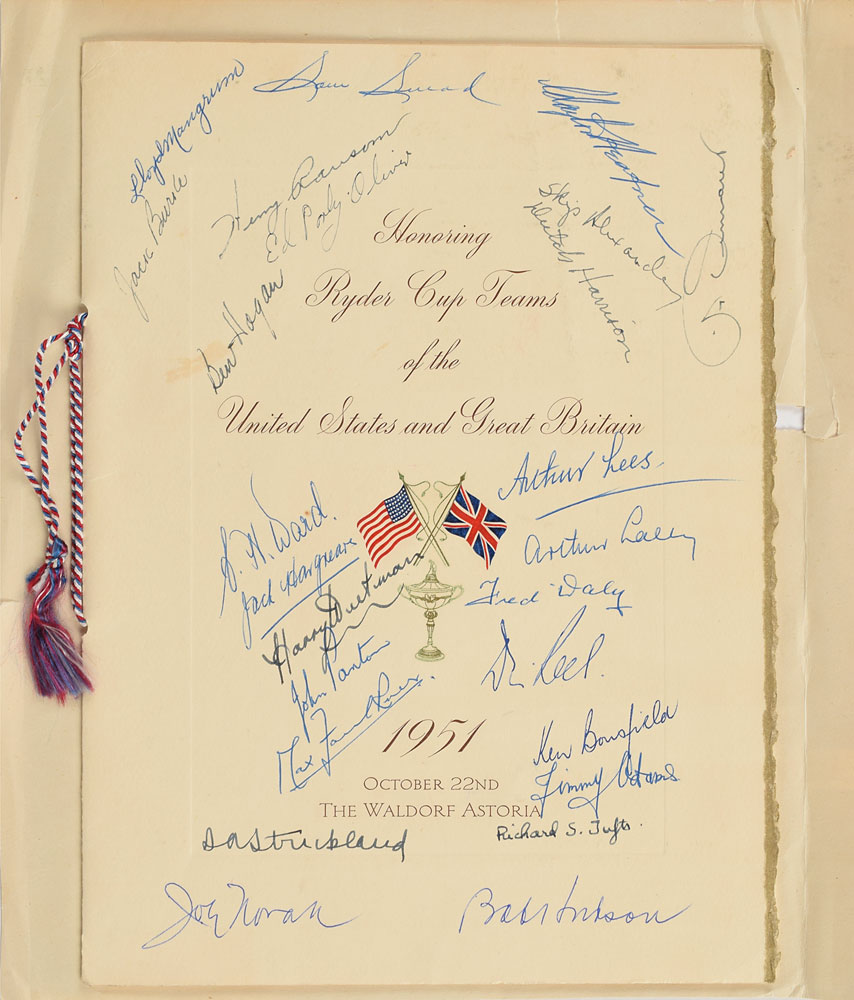 Sam Snead
Lloyd Mangrum
Clayton Heafner
Jack Burke
Henry Ransom
Ed Porky Oliver
Skip Alexander
Dutch Harrison
Ben Hogan
Honoring
Ryder Cup Teams
of the
United States and Great Britain
Arthur Lees
S. H. Ward.
Jack Hargreaves
Arthur Lacey
Harry
Fred Daly
John Panton
Dai Rees.
Max Faulkner.
1951
Ken Bousfield
Jimmy Adams
October 22nd
The Waldorf Astoria
Strickland
Richard S. Tufts.
Joe Novak